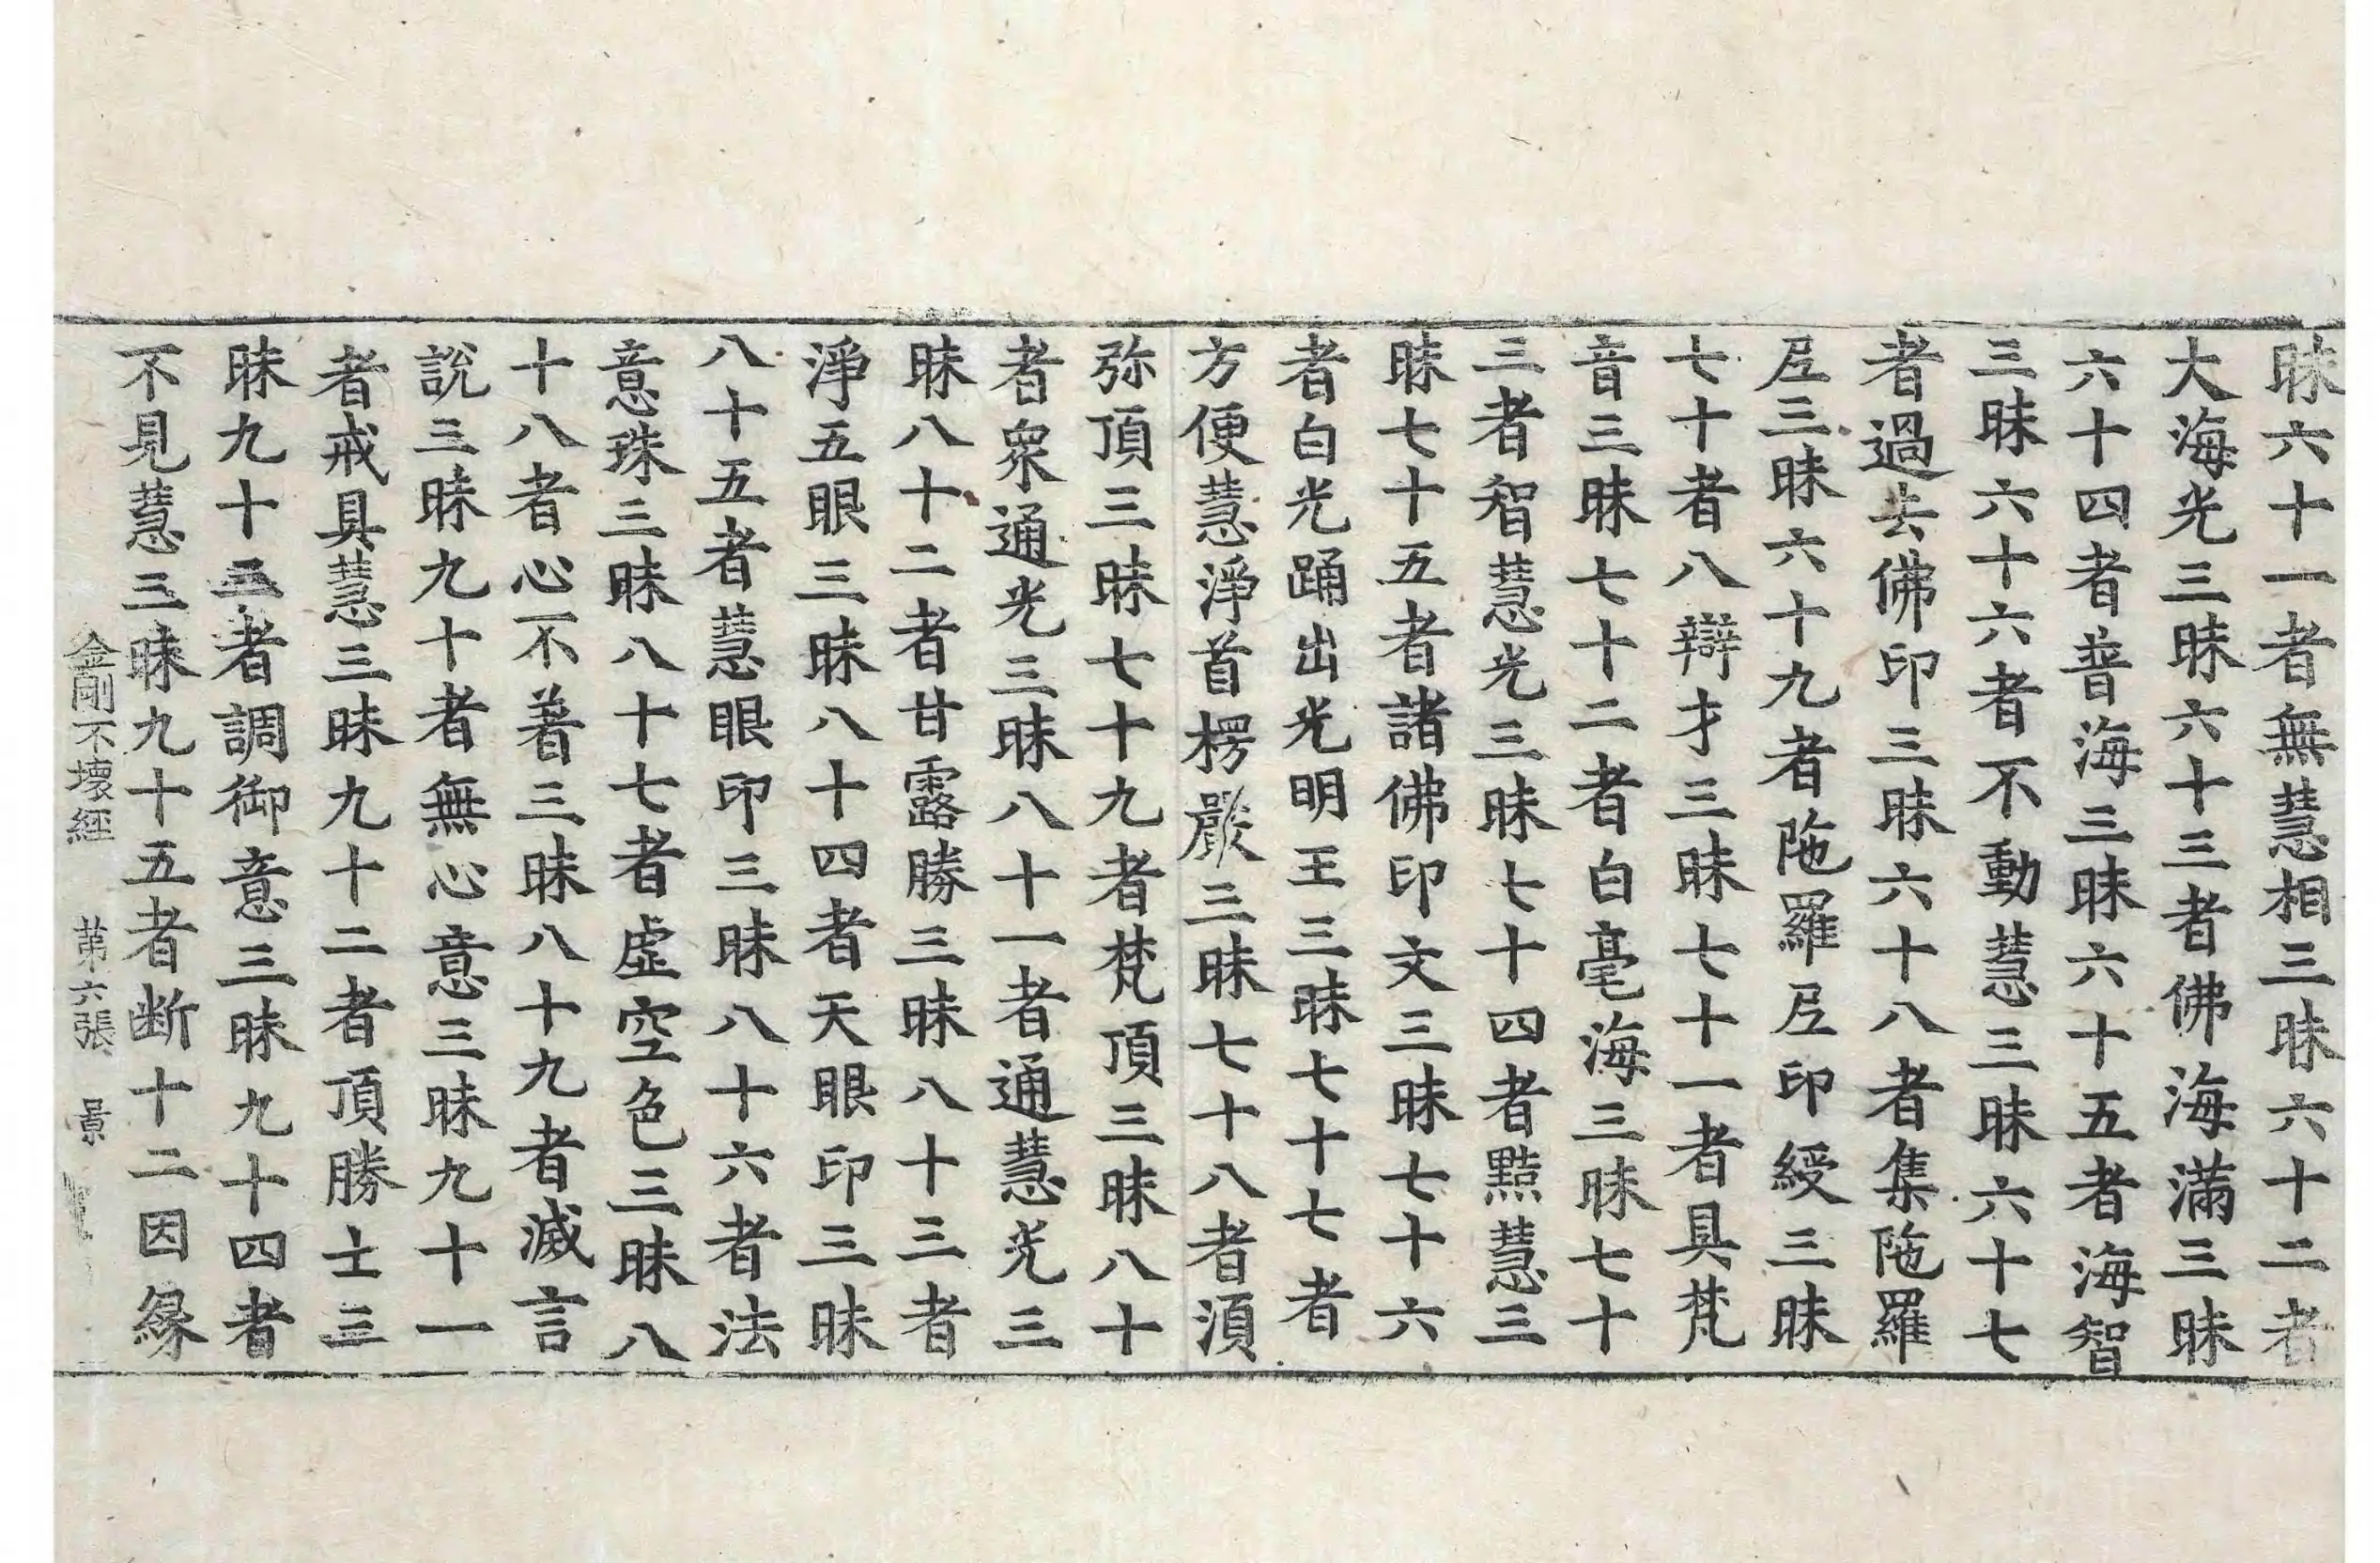 昧六十一者無慧相三昧六十二者
大海光三昧六十三者佛海滿三昧
六十四者普海三昧六十五者海智
三昧六十六者不動慧三昧六十七
者過去佛印三昧六十八者集陁羅
𡰱三昧六十九者陁羅𡰱印綬三昧
七十者八辯才三昧七十一者具梵
音三昧七十二者白毫海三昧七十
三者智慧光三昧七十四者黠慧三
昧七十五者諸佛印文三昧七十六
者白光踊出光明王三昧七十七者
方便慧淨首楞嚴三昧七十八者湏
弥頂三昧七十九者梵頂三昧八十
者衆通光三昧八十一者通慧光三
昧八十二者甘露勝三昧八十三者
淨五眼三昧八十四者天眼印三昧
八十五者慧眼印三昧八十六者法
意珠三昧八十七者虛空色三昧八
十八者心不著三昧八十九者滅言
說三昧九十者無心意三昧九十一
者戒具慧三昧九十二者頂勝士三
昧九十三者調御意三昧九十四者
不見慧三昧九十五者断十二因緣
金剛不壞經 第六張 景